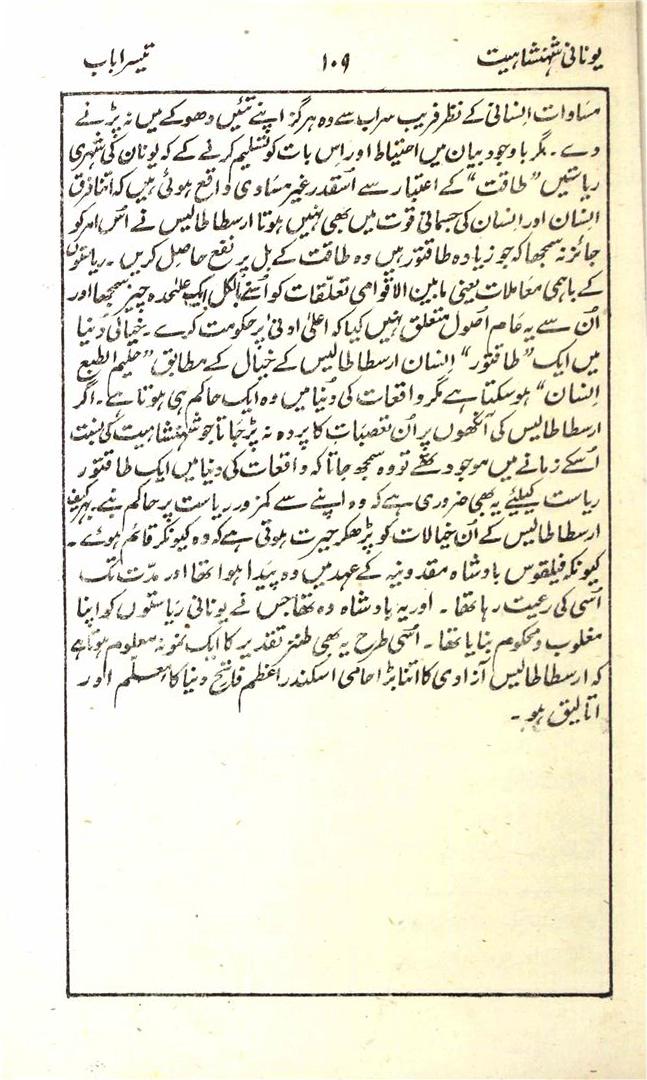 یونانی شہنشاہیت ۱۰۹ تیسرا باب
مساوات انسانی کے نظر فریب سراب سے وہ ہرگز اپنے تئیں دھوکے میں نہ پڑنے
دے۔ مگر باوجود بیان میں احتیاط اور اس بات کو تسلیم کرنے کے کہ یونان کی شہری
ریاستیں "طاقت" کے اعتبار سے اسقدر غیر مساوی واقع ہوئی ہیں کہ اتنا فرق
انسان اور انسان کی جسمانی قوت میں بھی نہیں ہوتا ارسطاطالیس نے اُس امر کو
جائز نہ سمجھا کہ جو زیادہ طاقتور ہیں وہ طاقت کے بل پر نفع حاصل کریں۔ ریاستوں
کے باہمی معاملات یعنی مابین الاقوامی تعلقات کو اُسنے بالکل ایک علیحدہ چیز سمجھا اور
اُن سے یہ عام اصول متعلق نہیں کیا کہ اعلیٰ ادنیٰ پر حکومت کرے۔ خیالی دُنیا
میں ایک "طاقتور" انسان ارسطاطالیس کے خیال کے مطابق "حلیم الطبع
انسان" ہوسکتا ہے مگر واقعات کی دُنیا میں وہ ایک حاکم ہی ہوتا ہے۔ اگر
ارسطاطالیس کی آنکھوں پر اُن تعصبات کا پردہ نہ پڑ جاتا جو شہنشاہیت کی نسبت
اُسکے زمانے میں موجود تھے تو وہ سمجھ جاتا کہ واقعات کی دنیا میں ایک طاقتور
ریاست کیلئے یہ بھی ضروری ہے کہ وہ اپنے سے کمزور ریاست پر حاکم بنے۔ بہرکیف
ارسطاطالیس کے اُن خیالات کو پڑھکر حیرت ہوتی ہے کہ وہ کیونکر قائم ہوئے۔
کیونکہ فیلقوس بادشاہ مقدونیہ کے عہد میں وہ پیدا ہوا تھا اور مدت تک
اُسی کی رعیت رہا تھا۔ اور یہ بادشاہ وہ تھا جس نے یونانی ریاستوں کو اپنا
مغلوب و محکوم بنایا تھا۔ اُسی طرح یہ بھی طنز تقدیر کا ایک نمونہ معلوم ہوتا ہے
کہ ارسطاطالیس آزادی کا اتنا بڑا حامی اسکندر اعظم فاتح دنیا کا معلّم اور
اتالیق ہو۔